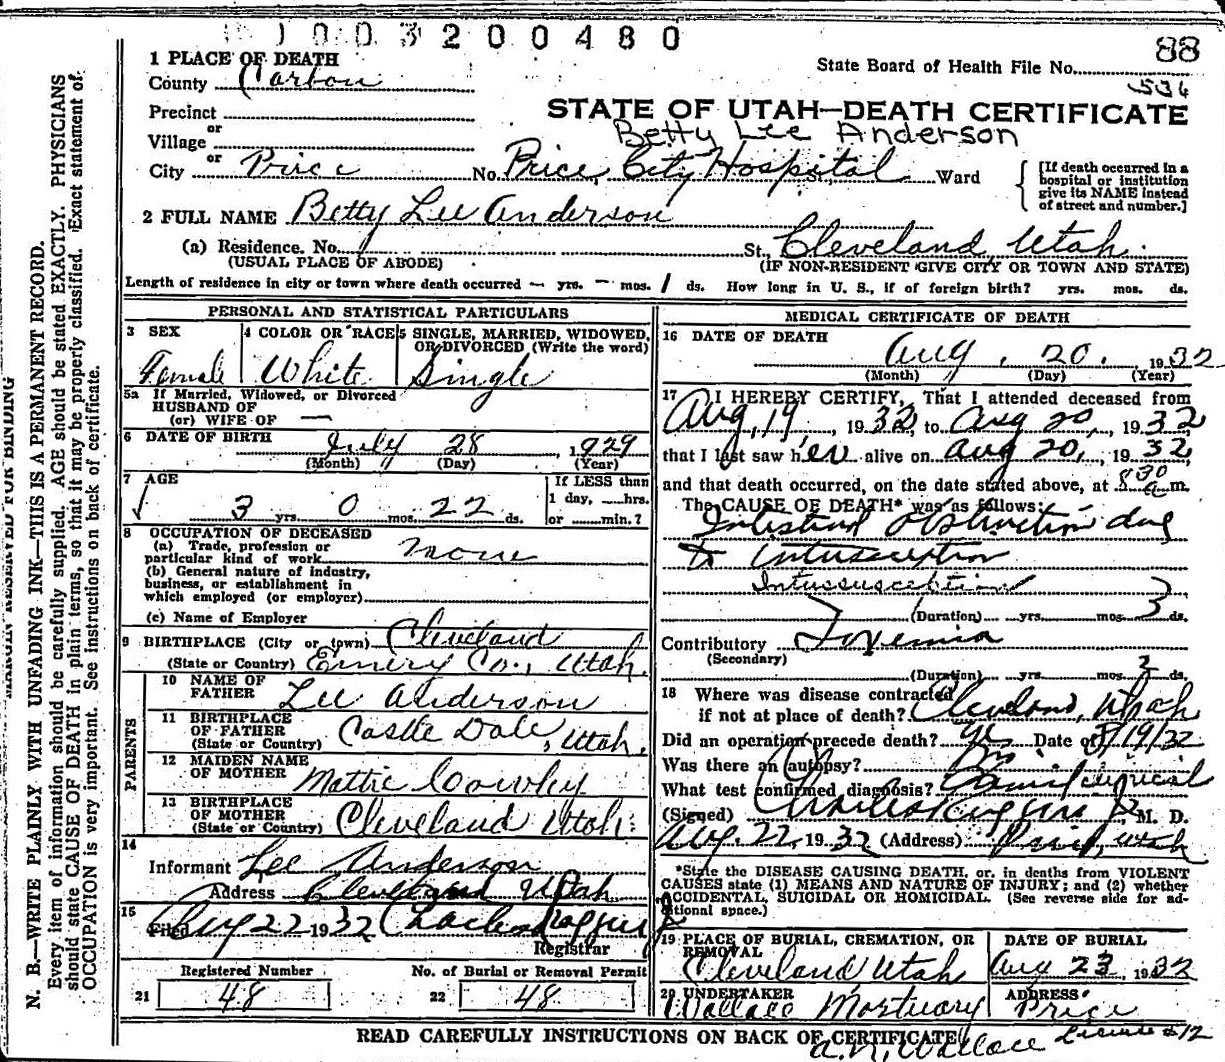 1003200480
88
State Board of Health File No.
536
1 PLACE OF DEATH
County Carbon
STATE OF UTAH—DEATH CERTIFICATE
Precinct
or
Village
Betty Lee Anderson
or
City Price No. Price City Hospital St., Ward
[If death occurred in a hospital or institution give its NAME instead of street and number.]
2 FULL NAME Betty Lee Anderson
(a) Residence. No. St., Cleveland, Utah.
(USUAL PLACE OF ABODE) (IF NON-RESIDENT GIVE CITY OR TOWN AND STATE)
Length of residence in city or town where death occurred — yrs. — mos. 1 ds. How long in U. S., if of foreign birth? yrs. mos. ds.
PERSONAL AND STATISTICAL PARTICULARS
3 SEX 4 COLOR OR RACE 5 SINGLE, MARRIED, WIDOWED, OR DIVORCED (Write the word)
Female White Single
5a If Married, Widowed, or Divorced
HUSBAND OF
(or) WIFE OF —
6 DATE OF BIRTH July 28, 1929
(Month) (Day) (Year)
7 AGE If LESS than
3 yrs. 0 mos. 22 ds. 1 day, hrs.
or min.?
8 OCCUPATION OF DECEASED
(a) Trade, profession or
particular kind of work None
(b) General nature of industry,
business, or establishment in
which employed (or employer)
(c) Name of Employer
9 BIRTHPLACE (City or town) Cleveland
(State or Country) Emery Co., Utah.
PARENTS
10 NAME OF
FATHER Lee Anderson
11 BIRTHPLACE
OF FATHER Castle Dale, Utah.
(State or Country)
12 MAIDEN NAME
OF MOTHER Mattie Cowley
13 BIRTHPLACE
OF MOTHER Cleveland Utah.
(State or Country)
14
Informant Lee Anderson
Address Cleveland Utah
15
Filed Aug 22 1932 Charles Ruggeri Jr
Registrar
Registered Number No. of Burial or Removal Permit
21 48 22 48
MEDICAL CERTIFICATE OF DEATH
16 DATE OF DEATH
Aug. 20. 1932
(Month) (Day) (Year)
17 I HEREBY CERTIFY, That I attended deceased from
Aug, 19, 1932, to Aug 20, 1932
that I last saw her alive on Aug 20, 1932
and that death occurred, on the date stated above, at 830 a.m.
The CAUSE OF DEATH* was as follows:
Intestinal obstruction due
to intusception
Intussusception
(Duration) yrs. mos. 3 ds.
Contributory Toxemia
(Secondary)
(Duration) yrs. mos. 2 ds.
18 Where was disease contracted
if not at place of death? Cleveland, Utah
Did an operation precede death? yes Date of 8/19/32
Was there an autopsy? No
What test confirmed diagnosis? clinical
(Signed) Charles Ruggeri Jr M. D.
Aug. 22, 1932 (Address) Price, Utah
*State the DISEASE CAUSING DEATH, or, in deaths from VIOLENT
CAUSES state (1) MEANS AND NATURE OF INJURY; and (2) whether
ACCIDENTAL, SUICIDAL OR HOMICIDAL. (See reverse side for additional space.)
19 PLACE OF BURIAL, CREMATION, OR REMOVAL DATE OF BURIAL
Cleveland, Utah Aug 23, 1932
20 UNDERTAKER ADDRESS
Wallace Mortuary Price
READ CAREFULLY INSTRUCTIONS ON BACK OF CERTIFICATE
A.N. Wallace License #12
MARGIN RESERVED FOR BINDING
N. B.—WRITE PLAINLY WITH UNFADING INK—THIS IS A PERMANENT RECORD.
Every item of information should be carefully supplied. AGE should be stated EXACTLY. PHYSICIANS
should state CAUSE OF DEATH in plain terms, so that it may be properly classified. Exact statement of
OCCUPATION is very important. See instructions on back of certificate.